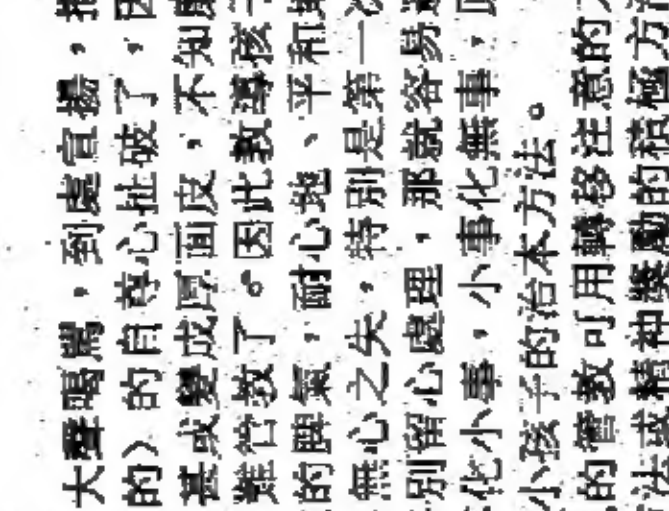 大聲喝罵，到處宣揚，
的）的自尊心扯破了，因
甚或變成厚面皮，不知
難管教了。因此教導孩
的脾氣，耐心地、平和
無心之失，特別是第一
別留心處理，那就容易
化小事，小事化無事，
小孩子的治本方法。
的管教可用轉移注意的
法或精神獎勵的積極方